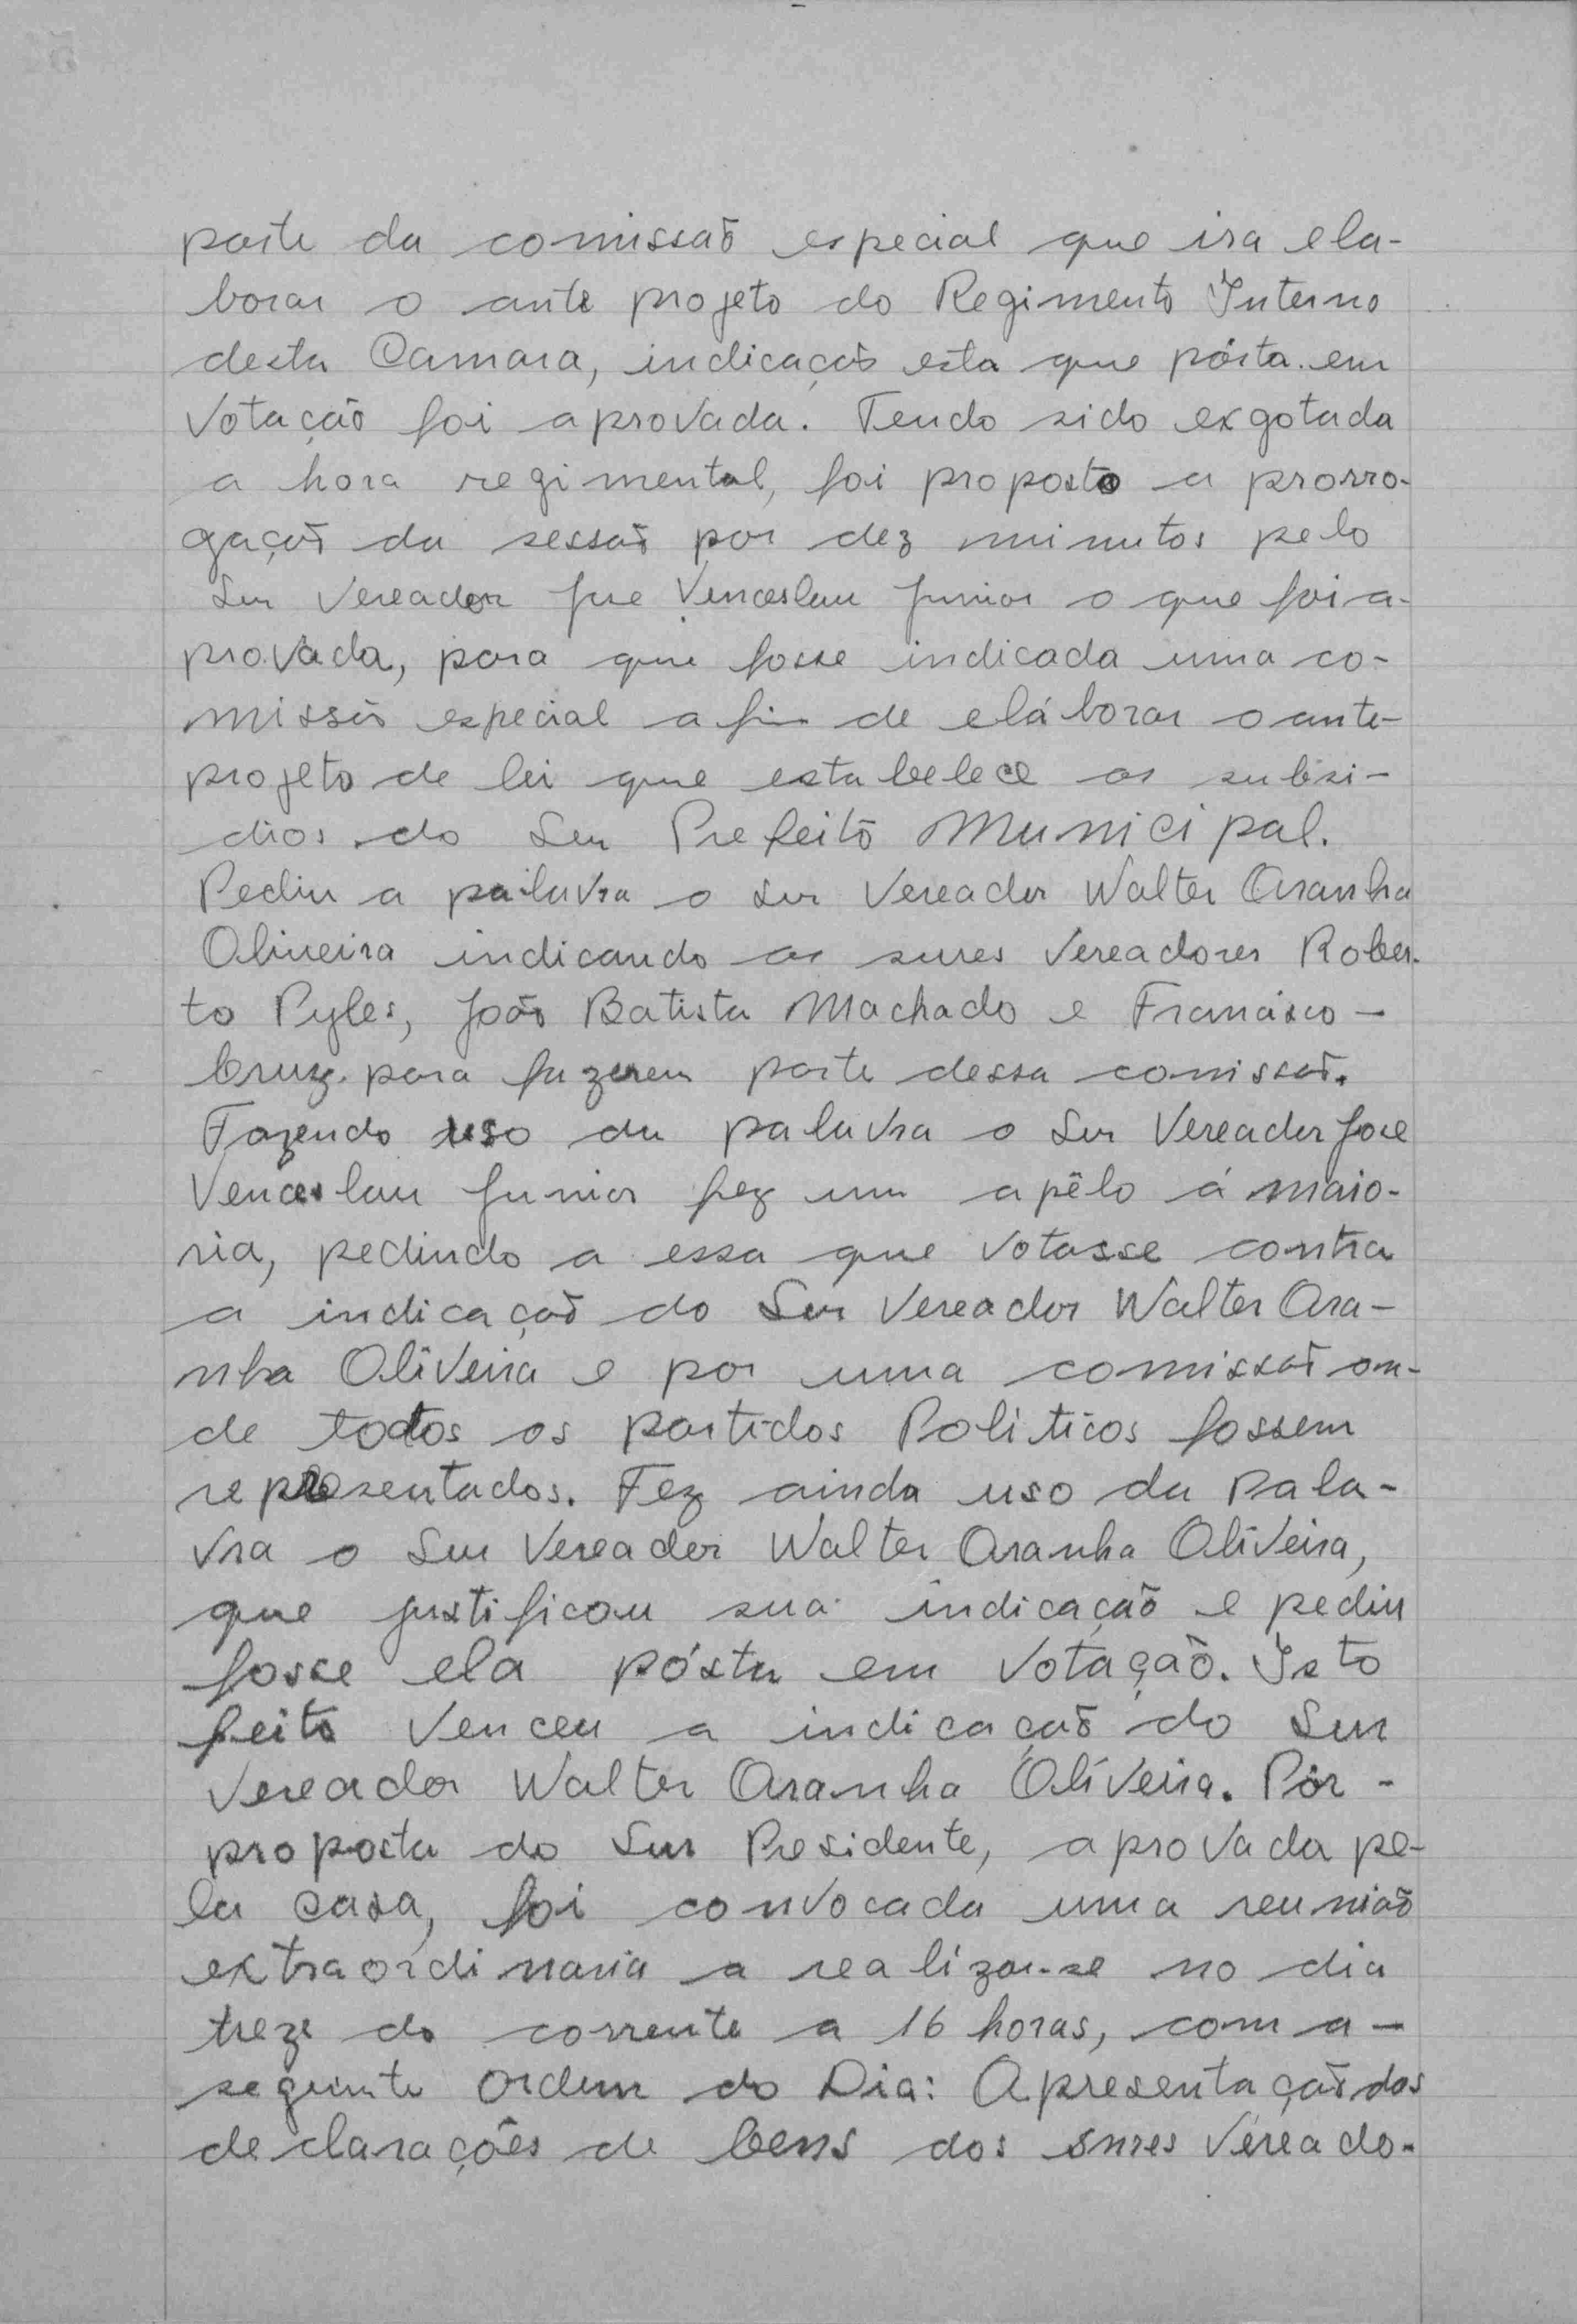 parte da comissaõ especial que ira ela-
borar o ante projeto do Regimento Interno
desta Camara, indicaçaõ esta que pósta em
votação foi aprovada. Tendo sido exgotada
a hora regimental, foi proposto a prorro-
gaçaõ da sessaõ por dez minutos pelo
Snr Vereador Jose Venceslau Junior o que foi a-
provada, para que fosse indicada uma co-
missão especial a fim de eláborar o ante-
projeto de lei que estabelece os subsi-
dios do Snr Prefeito Municipal.
Pediu a palavra o Snr Vereador Walter Aranha
Oliveira indicando os snres Vereadores Rober-
to Pyles, João Batista Machado e Francisco -
Cruz para fazerem parte dessa comissaõ.
Fazendo uso da palavra o Snr Vereador Jose
Venceslau Junior fez um apêlo á maio-
ria, pedindo a essa que votasse contra
a indicaçaõ do Snr Vereador Walter Ara-
nha Oliveira e por uma comissaõ on-
de todos os partidos Politicos fossem
representados. Fez ainda uso da pala-
vra o Snr Vereador Walter Aranha Oliveira,
que justificou sua indicação e pediu
fosse ela pósta em votação. Isto
feito venceu a indicaçaõ do Snr
Vereador Walter Aranha Oliveira. Pór -
proposta do Snr Presidente, aprovada pe-
la casa, foi convocada uma reuniaõ
extraordinaria a realizar-se no dia
treze do corrente a 16 horas, com a -
seguinte Ordem do Dia: Apresentaçaõ das
declarações de bens dos snres Vereado-